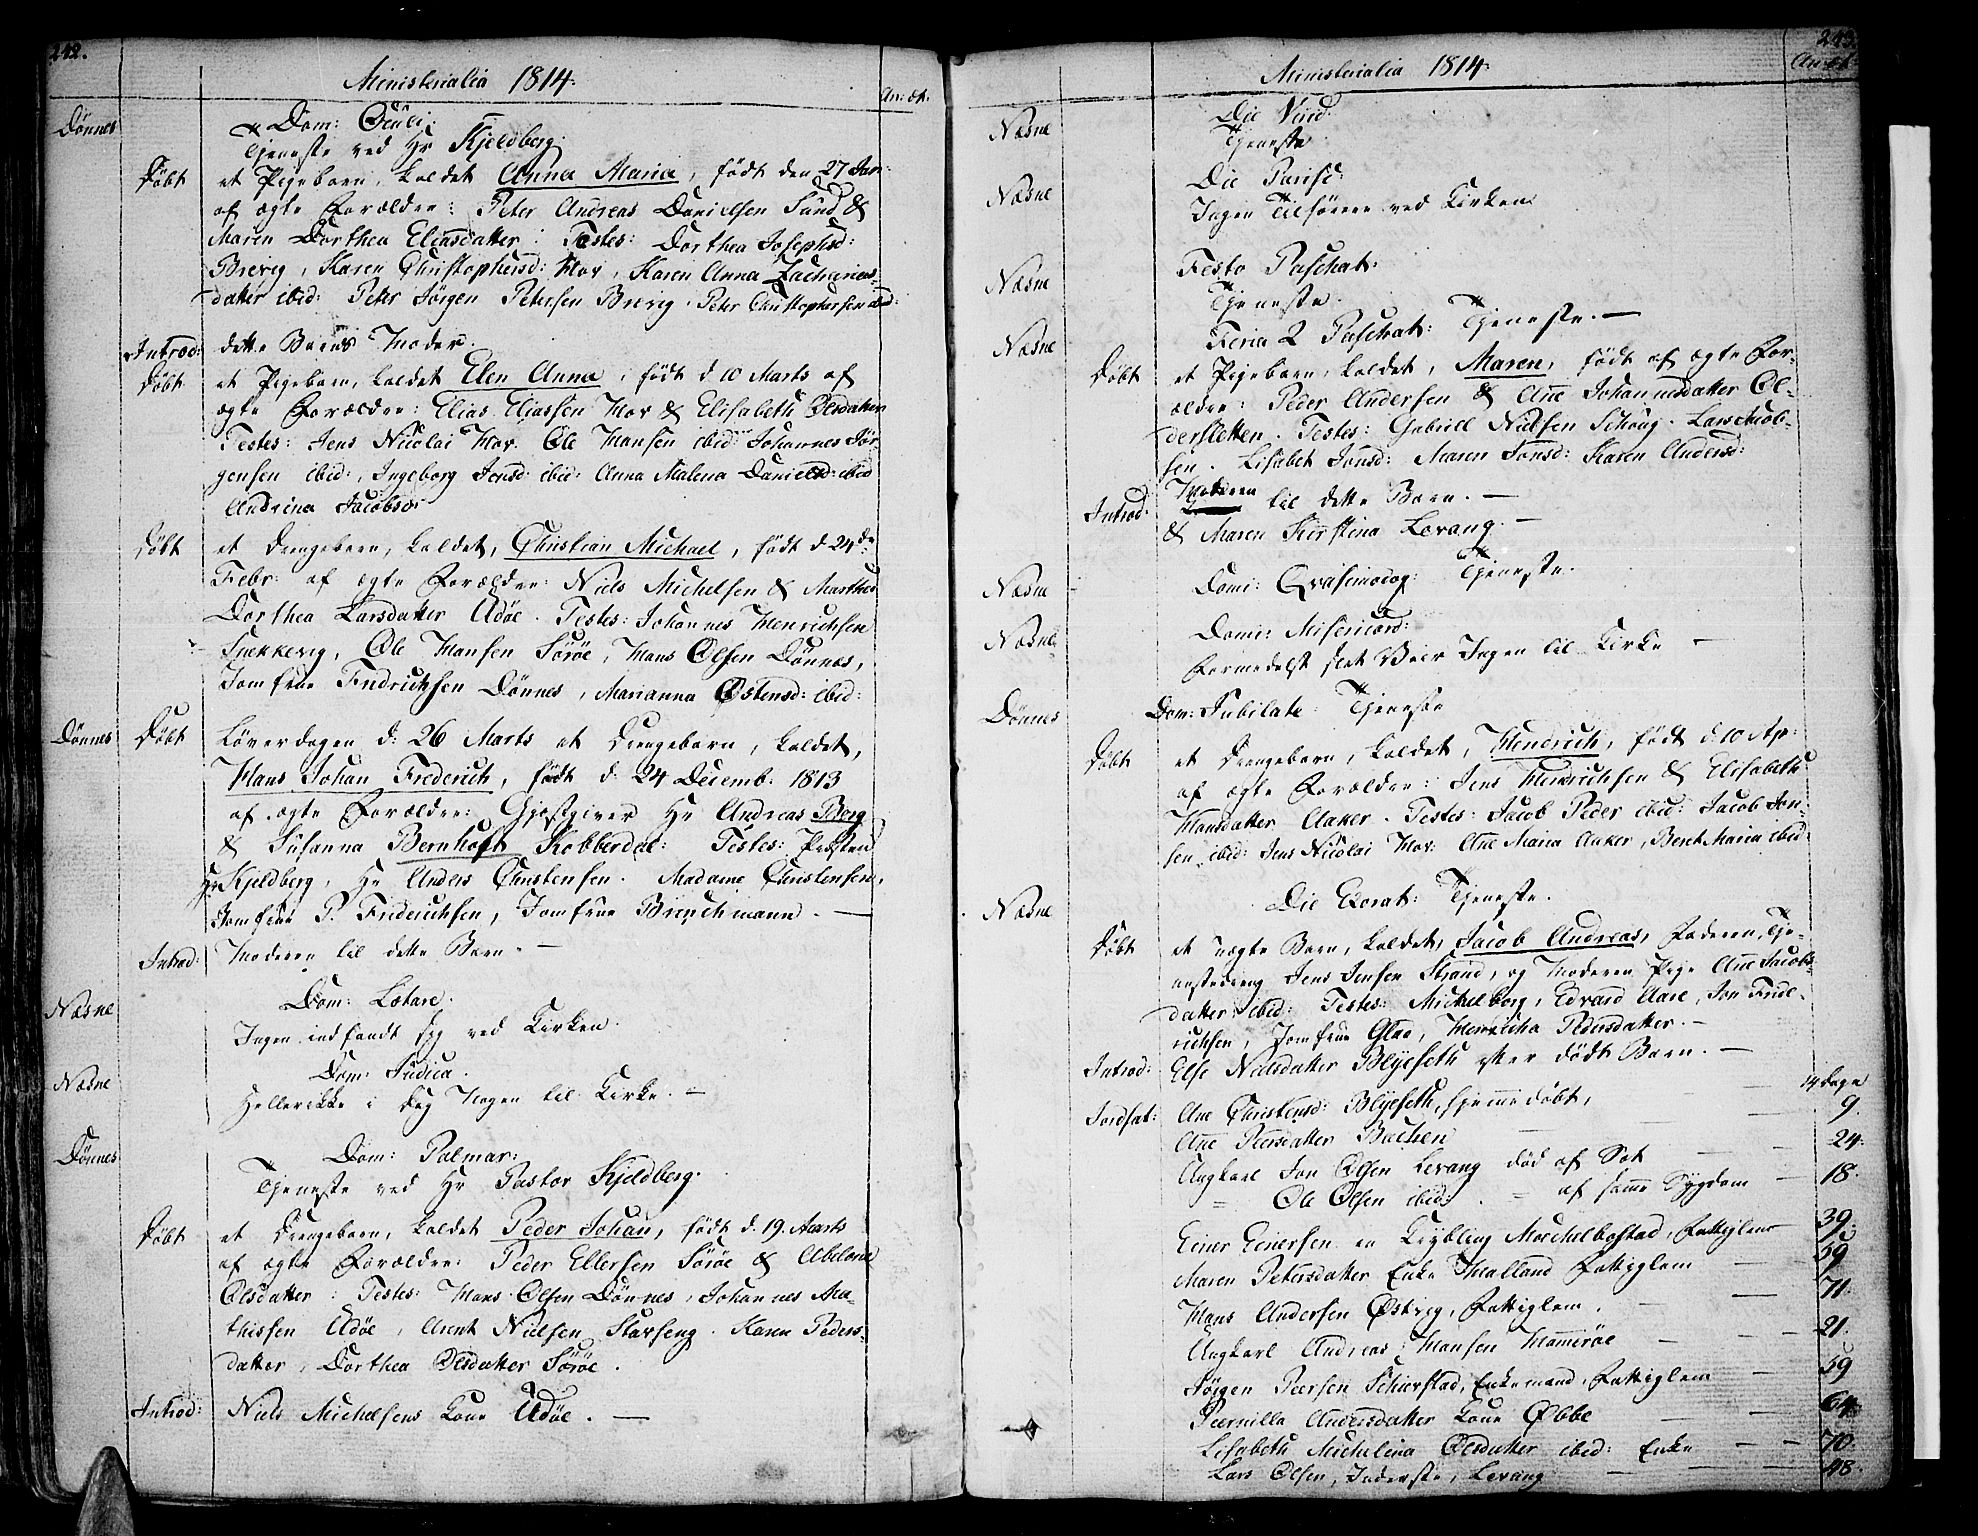 242.
Ministerialia 1814.
An: æt.
Dønnes
Dom: Oculi.
Tjeneste ved Hr Kjeldberg.
Døbt et Pigebarn, kaldet Anna Maria, født den 27 Jan:
af ægte Forældre: Peter Andreas Danielsen Sund &
Maren Dorthea Eliasdatter. Testes: Dorthea Josephsd:
Brevig, Karen Christophersd: Mov, Karen Anna Zacharias-
datter ibid: Peter Jørgen Petersen Brevig, Peter Christophersen ibid:
Introd: dette Barns Moder.
Døbt et Pigebarn, kaldet Elen Anna, født d 10 Marts af
ægte Forældre: Elias Eliassen Mov & Elisabeth Olsdatter
Testes: Jens Nicolai Mov. Ole Hansen ibid: Johannes Jør-
gensen ibid:, Ingeborg Jensd: ibid: Anna Malena Danielsd: ibid
Andrina Jacobsd:
Døbt et Drengebarn, kaldet, Christian Michael, født d 24de
Febr: af ægte Forældre: Niels Michelsen & Marthe
Dorthea Larsdatter Adøe. Testes: Johannes Henrichsen
Snekkevig, Ole Hansen Sørøe, Hans Olsen Dønnes,
Jomfrue Fridrichsen Dønnes, Marianna Østensd: ibid:
Dønnes Døbt Løverdagen d: 26 Marts et Drengebarn, kaldet,
Hans Johan Frederich, født d. 24 Decemb: 1813
af ægte Forældre: Gjæstgiver Hr Andreas Berg
& Susanna Bernhoft Kobberdal: Testes: Præsten
Hr Kjeldberg, Hr Anders Christensen. Madame Christensen,
Jomfrue P. Friderichsen, Jomfrue Brinchmann. —
Introd: Moderen til dette Barn. —
Næsne
Dom: Lætare.
Ingen indfandt sig ved Kirken.
Næsne
Dom: Judica.
Hellerikke i Dag Nogen til Kirke. —
Dønnes
Dom: Palmar:
Tjeneste ved Hr Pastor Kjeldberg.
Døbt et Drengebarn, kaldet Peder Johan, født d. 19. Marts
af ægte Forældre: Peder Ellersen Sørøe & Abelone
Olsdatter: Testes: Hans Olsen Dønnes, Johannes Ma-
thissen Adøe, Arent Nielsen Stavseng. Karen Peders-
datter, Dorthea Olsdatter Sørøe.
Introd: Niels Michelsens Kone Adøe. —
243.
Ministerialia 1814.
An: æt.
Næsne
Die Virid:
Tjeneste
Næsne
Die Parisc:
Ingen Tilhørere ved Kirken
Næsne
Festo Paschat:
Tjeneste.
Næsne
Feria 2 Paschat: Tjeneste. —
Døbt et Pigebarn, kaldet, Maren, født af ægte For-
ældre: Peder Andersen & Ane Johannesdatter Ol-
dersletten. Testes: Gabriel Nielsen Schoug. Lars Jacob-
sen. Lisabet Jonsd: Maren Jonsd: Karen Andersd:
Introd: Moderen til dette Barn. —
& Maren Kirstina Levang. —
Næsne
Domi: Qvasimodog: Tjeneste.
Næsne
Domi: Misericord:
Formedelst slet Veir Ingen til Kirke —
Dønnes
Dom: Jubilate: Tjeneste
Døbt et Drengebarn, kaldet, Hendrich, født d. 10 Ap:
af ægte Forældre: Jens Henrichsen & Elisabeth
Hansdatter Aaker. Testes: Jacob Peder ibid: Jacob Jon-
sen ibid: Jens Nicolai Mov: Ane Maria Aaker, Beret Maria ibid:
Næsne
Die Exorat: Tjeneste.
Døbt et uægte Barn, kaldet, Jacob Andreas, Faderen, Tje-
nestedreng Jens Jensen Strand, og Moderen Pige Ane Jacobs-
datter ibid: Testes: Michel borg, Edvard Aare, Jon Frid-
richsen, Jomfrue Glad, Henricha Pedersdatter. —
Introd: Else Nielsdatter Blyeseth efter dødt Barn. —
Jordfæt: Ane Christensd: Blyeseth, hjemmedøbt, 14 Dage
Ane Peersdatter Bachen — 9.
Ungkarl Jon Olsen Levang død af Sot — 24.
— Ole Olsen ibid: — af samme Sygdom — 18.
Einer Einersen en Krybling Michelbostad, Fattiglem 39.
Maren Petersdatter Enke Halland Fattiglem — 59
Hans Andersen Østvig, Fattiglem. — 71.
Ungkarl Andreas Hansen Hamerøe — 21.
Jørgen Peersen Schierstad, Enkemand, Fattiglem — 59
Peernilla Andersdatter Kone Øbbe — 64.
Lisabeth Michelina Olsdatter ibid: Enke — 70.
Lars Olsen, Inderste, Levang — 48.